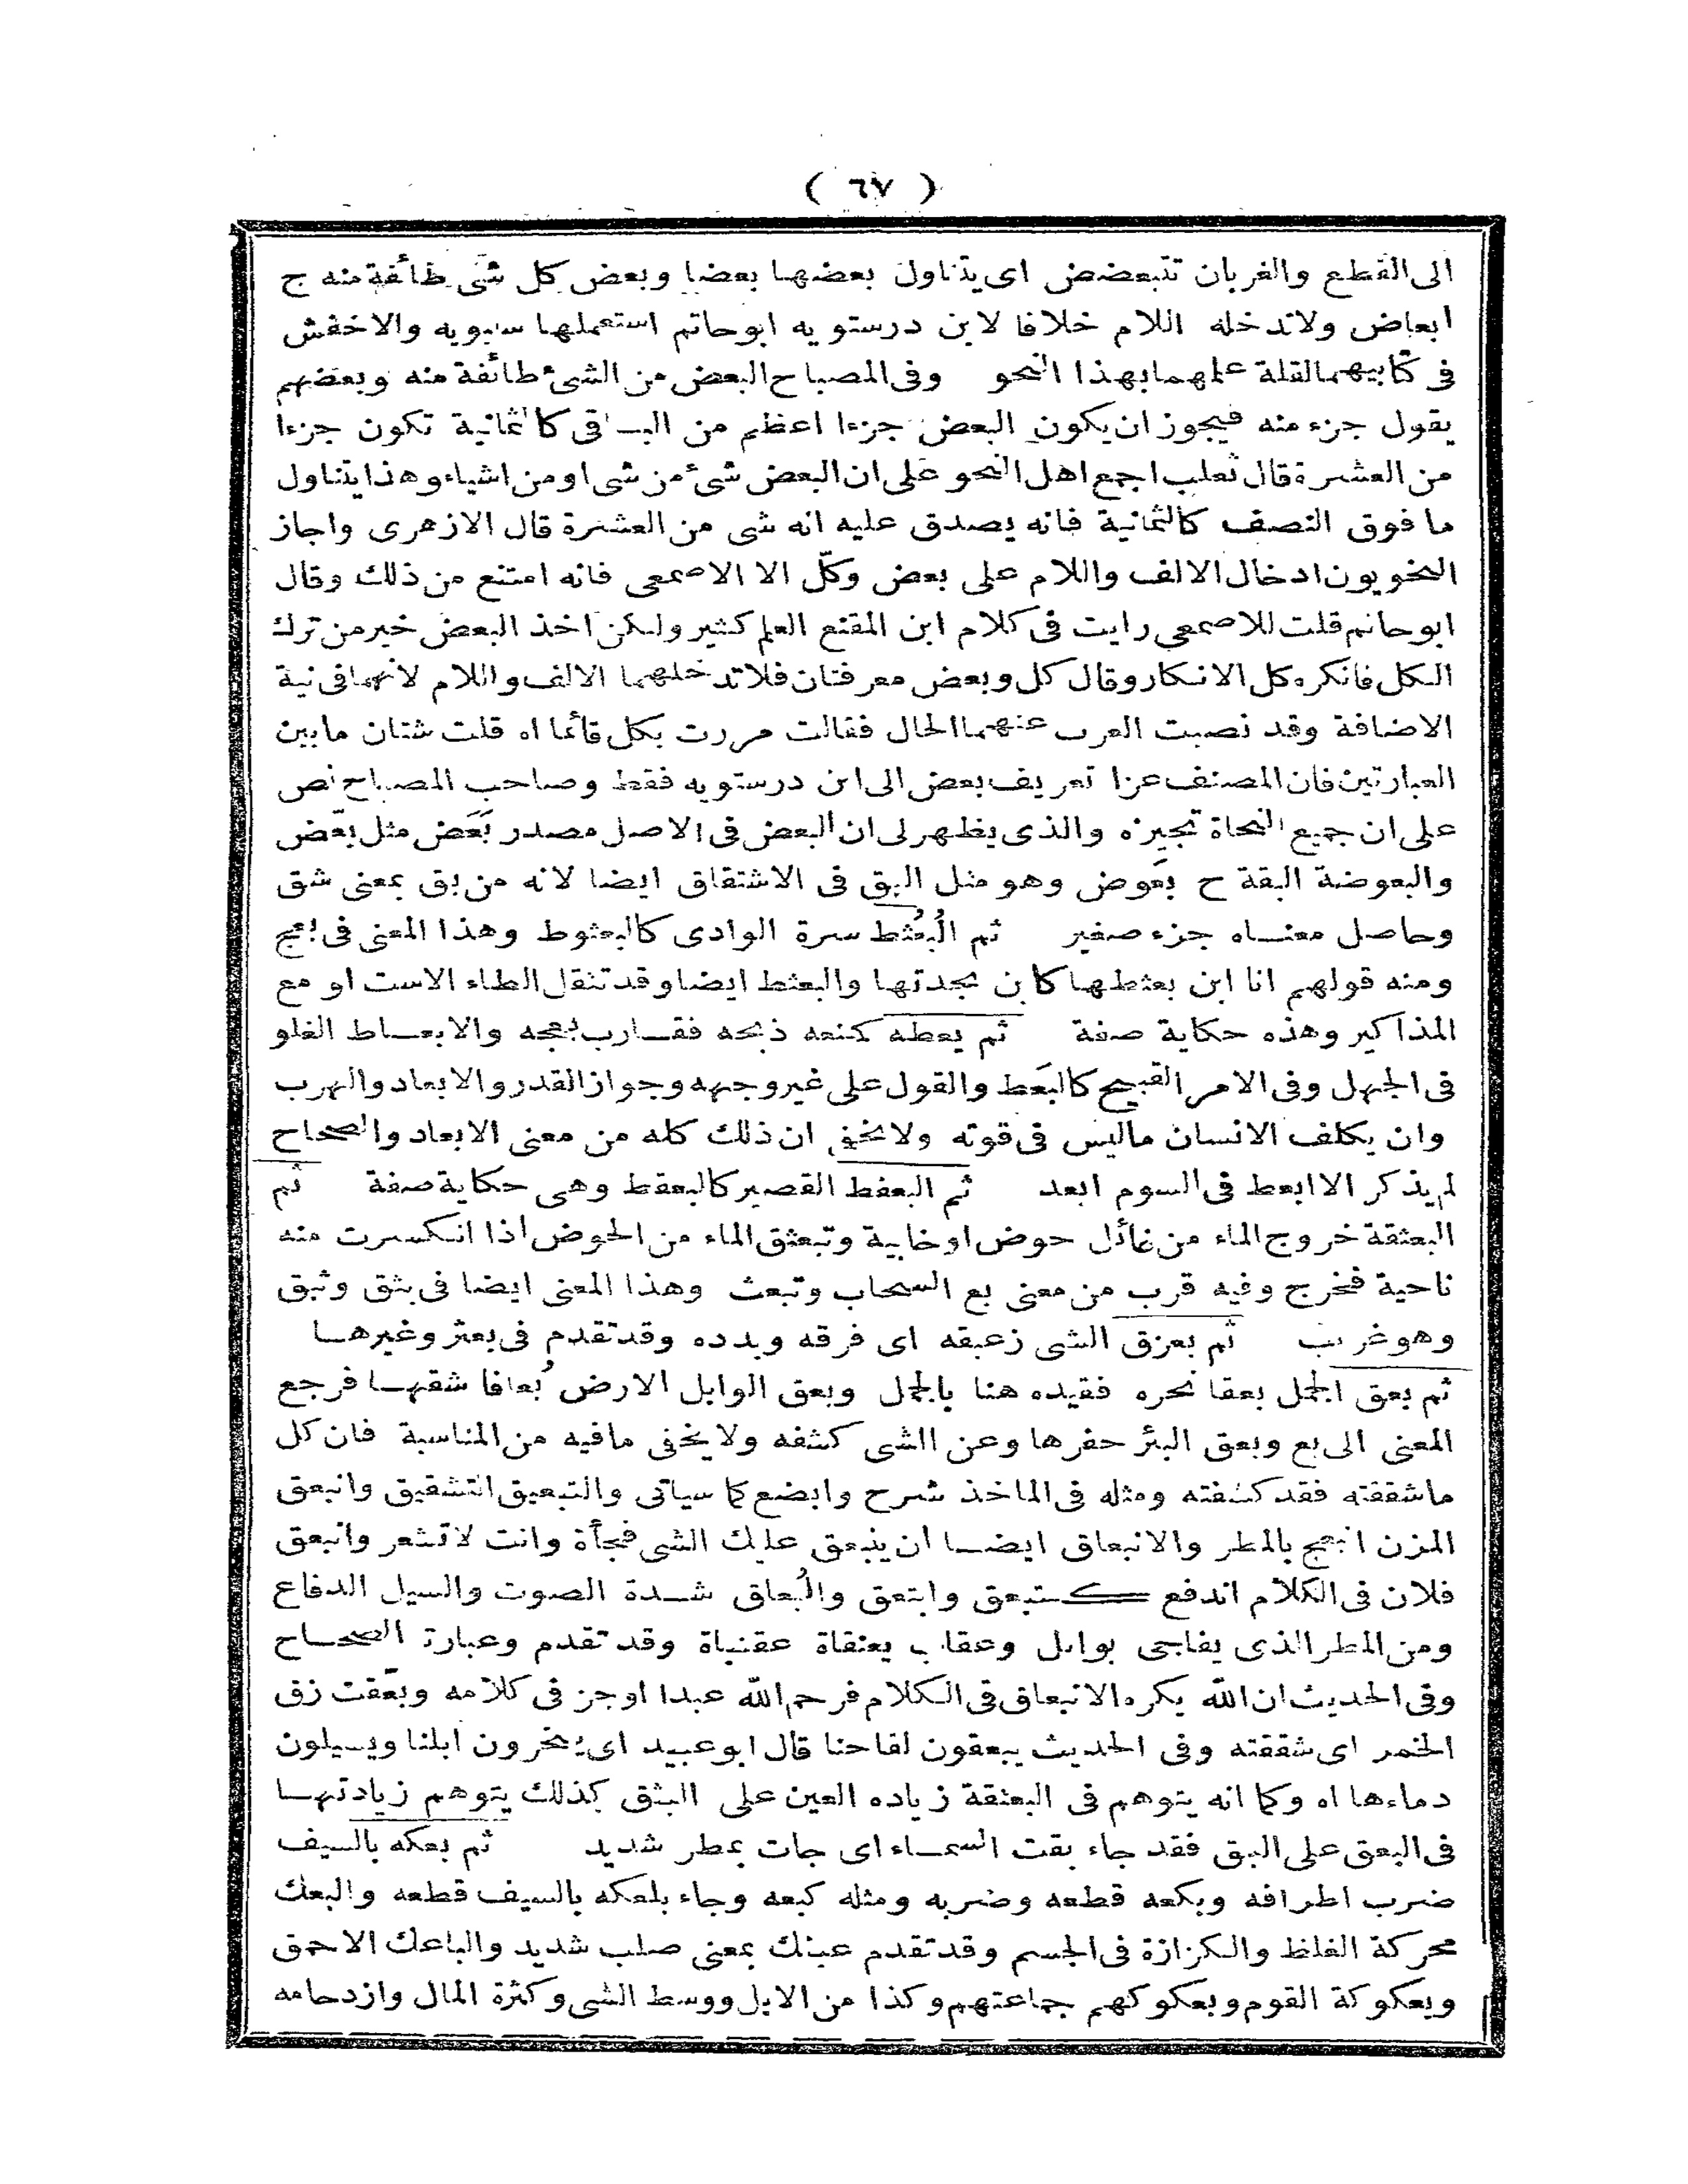 ( ٦٧ )
الى القطع والغربان تتبعضض اى يتناول بعضها بعضا وبعض كل شى طائفة منه ج
ابعاض ولاتدخله اللام خلافا لابن درستويه ابوحاتم استعملها سيبويه والاخفش
فى كتابيهما لقلة علمهما بهذا النحو وفى المصباح البعض من الشئ طائفة منه وبعضهم
يقول جزء منه فيجوز ان يكون البعض جزءا اعظم من الباقى كالثمانية تكون جزءا
من العشرة قال ثعلب اجمع اهل النحو على ان البعض شئ من شى او من اشياء وهذا يتناول
ما فوق النصف كالثمانية فانه يصدق عليه انه شى من العشرة قال الازهرى واجاز
النحويون ادخال الالف واللام على بعض وكلّ الا الاصمعى فانه امتنع من ذلك وقال
ابوحاتم قلت للاصمعى رايت فى كلام ابن المقفع العلم كثير ولكن اخذ البعض خير من ترك
الكل فانكره كل الانكار وقال كل وبعض معرفتان فلاتدخلهما الالف واللام لانهما فى نية
الاضافة وقد نصبت العرب عنهما الحال فقالت مررت بكل قائما اه قلت شتان مابين
العبارتين فان المصنف عزا تعريف بعض الى ابن درستويه فقط وصاحب المصباح نص
على ان جميع النحاة تجيزه والذى يظهر لى ان البعض فى الاصل مصدر بَعَض مثل بعّض
والبعوضة البقة ح بَعوض وهو مثل البق فى الاشتقاق ايضا لانه من بق بمعنى شق
وحاصل معناه جزء صغير ثم البُعْثُط سرة الوادى كالبعثوط وهذا المعنى فى بعج
ومنه قولهم انا ابن بعثطها كابن بجدتها والبعثط ايضا وقد تثقل الطاء الاست او مع
المذاكير وهذه حكاية صفة ثم بعطه كمنعه ذبحه فقارب بعجه والابعاط الغلو
فى الجهل وفى الامر القبيح كالبَعط والقول على غير وجهه وجواز القدر والابعاد والهرب
وان يكلف الانسان ماليس فى قوته ولايخفى ان ذلك كله من معنى الابعاد والصحاح
لم يذكر الا ابعط فى السوم ابعد ثم البعفط القصير كالبعقط وهى حكاية صفة ثم
البعثقة خروج الماء من غائل حوض او خابية وتبعثق الماء من الحوض اذا انكسرت منه
ناحية فخرج وفيه قرب من معنى بع السحاب وتبعث وهذا المعنى ايضا فى بثق وثبق
وهو غريب ثم بعزق الشى زعبقه اى فرقه وبدده وقد تقدم فى بعثر وغيرها
ثم بعق الجمل بعقا نحره فقيده هنا بالجمل وبعق الوابل الارض بُعاقا شقها فرجع
المعنى الى بع وبعق البئر حفرها وعن الشى كشفه ولايخفى مافيه من المناسبة فان كل
ماشققته فقد كشفته ومثله فى الماخذ شرح وابضع كما سياتى والتبعيق التشقيق وانبعق
المزن انبعج بالمطر والانبعاق ايضا ان ينبعق عليك الشى فجأة وانت لاتشعر وانبعق
فلان فى الكلام اندفع كتبعق وابتعق والبُعاق شدة الصوت والسيل الدفاع
ومن المطر الذى يفاجى بوابل وعقاب بعنقاة عقنباة وقد تقدم وعبارة الصحاح
وفى الحديث ان الله يكره الانبعاق فى الكلام فرحم الله عبدا اوجز فى كلامه وبعّقت زق
الخمر اى شققته وفى الحديث يبعقون لقاحنا قال ابوعبيد اى ينحرون ابلنا ويسيلون
دماءها اه وكما انه يتوهم فى البعثقة زياده العين على البثق كذلك يتوهم زيادتها
فى البعق على البق فقد جاء بقت السماء اى جات بمطر شديد ثم بعكه بالسيف
ضرب اطرافه وبكعه قطعه وضربه ومثله كبعه وجاء بلعكه بالسيف قطعه والبعك
محركة الغلظ والكزازة فى الجسم وقد تقدم عبنك بمعنى صلب شديد والباعك الاحمق
وبعكوكة القوم وبعكوكهم جماعتهم وكذا من الابل ووسط الشى وكثرة المال وازدحامه